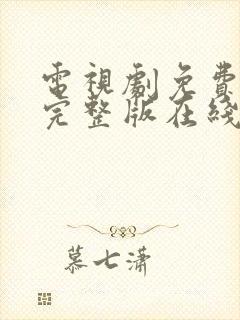 電視劇免費
完整版在綫
慕七瀟